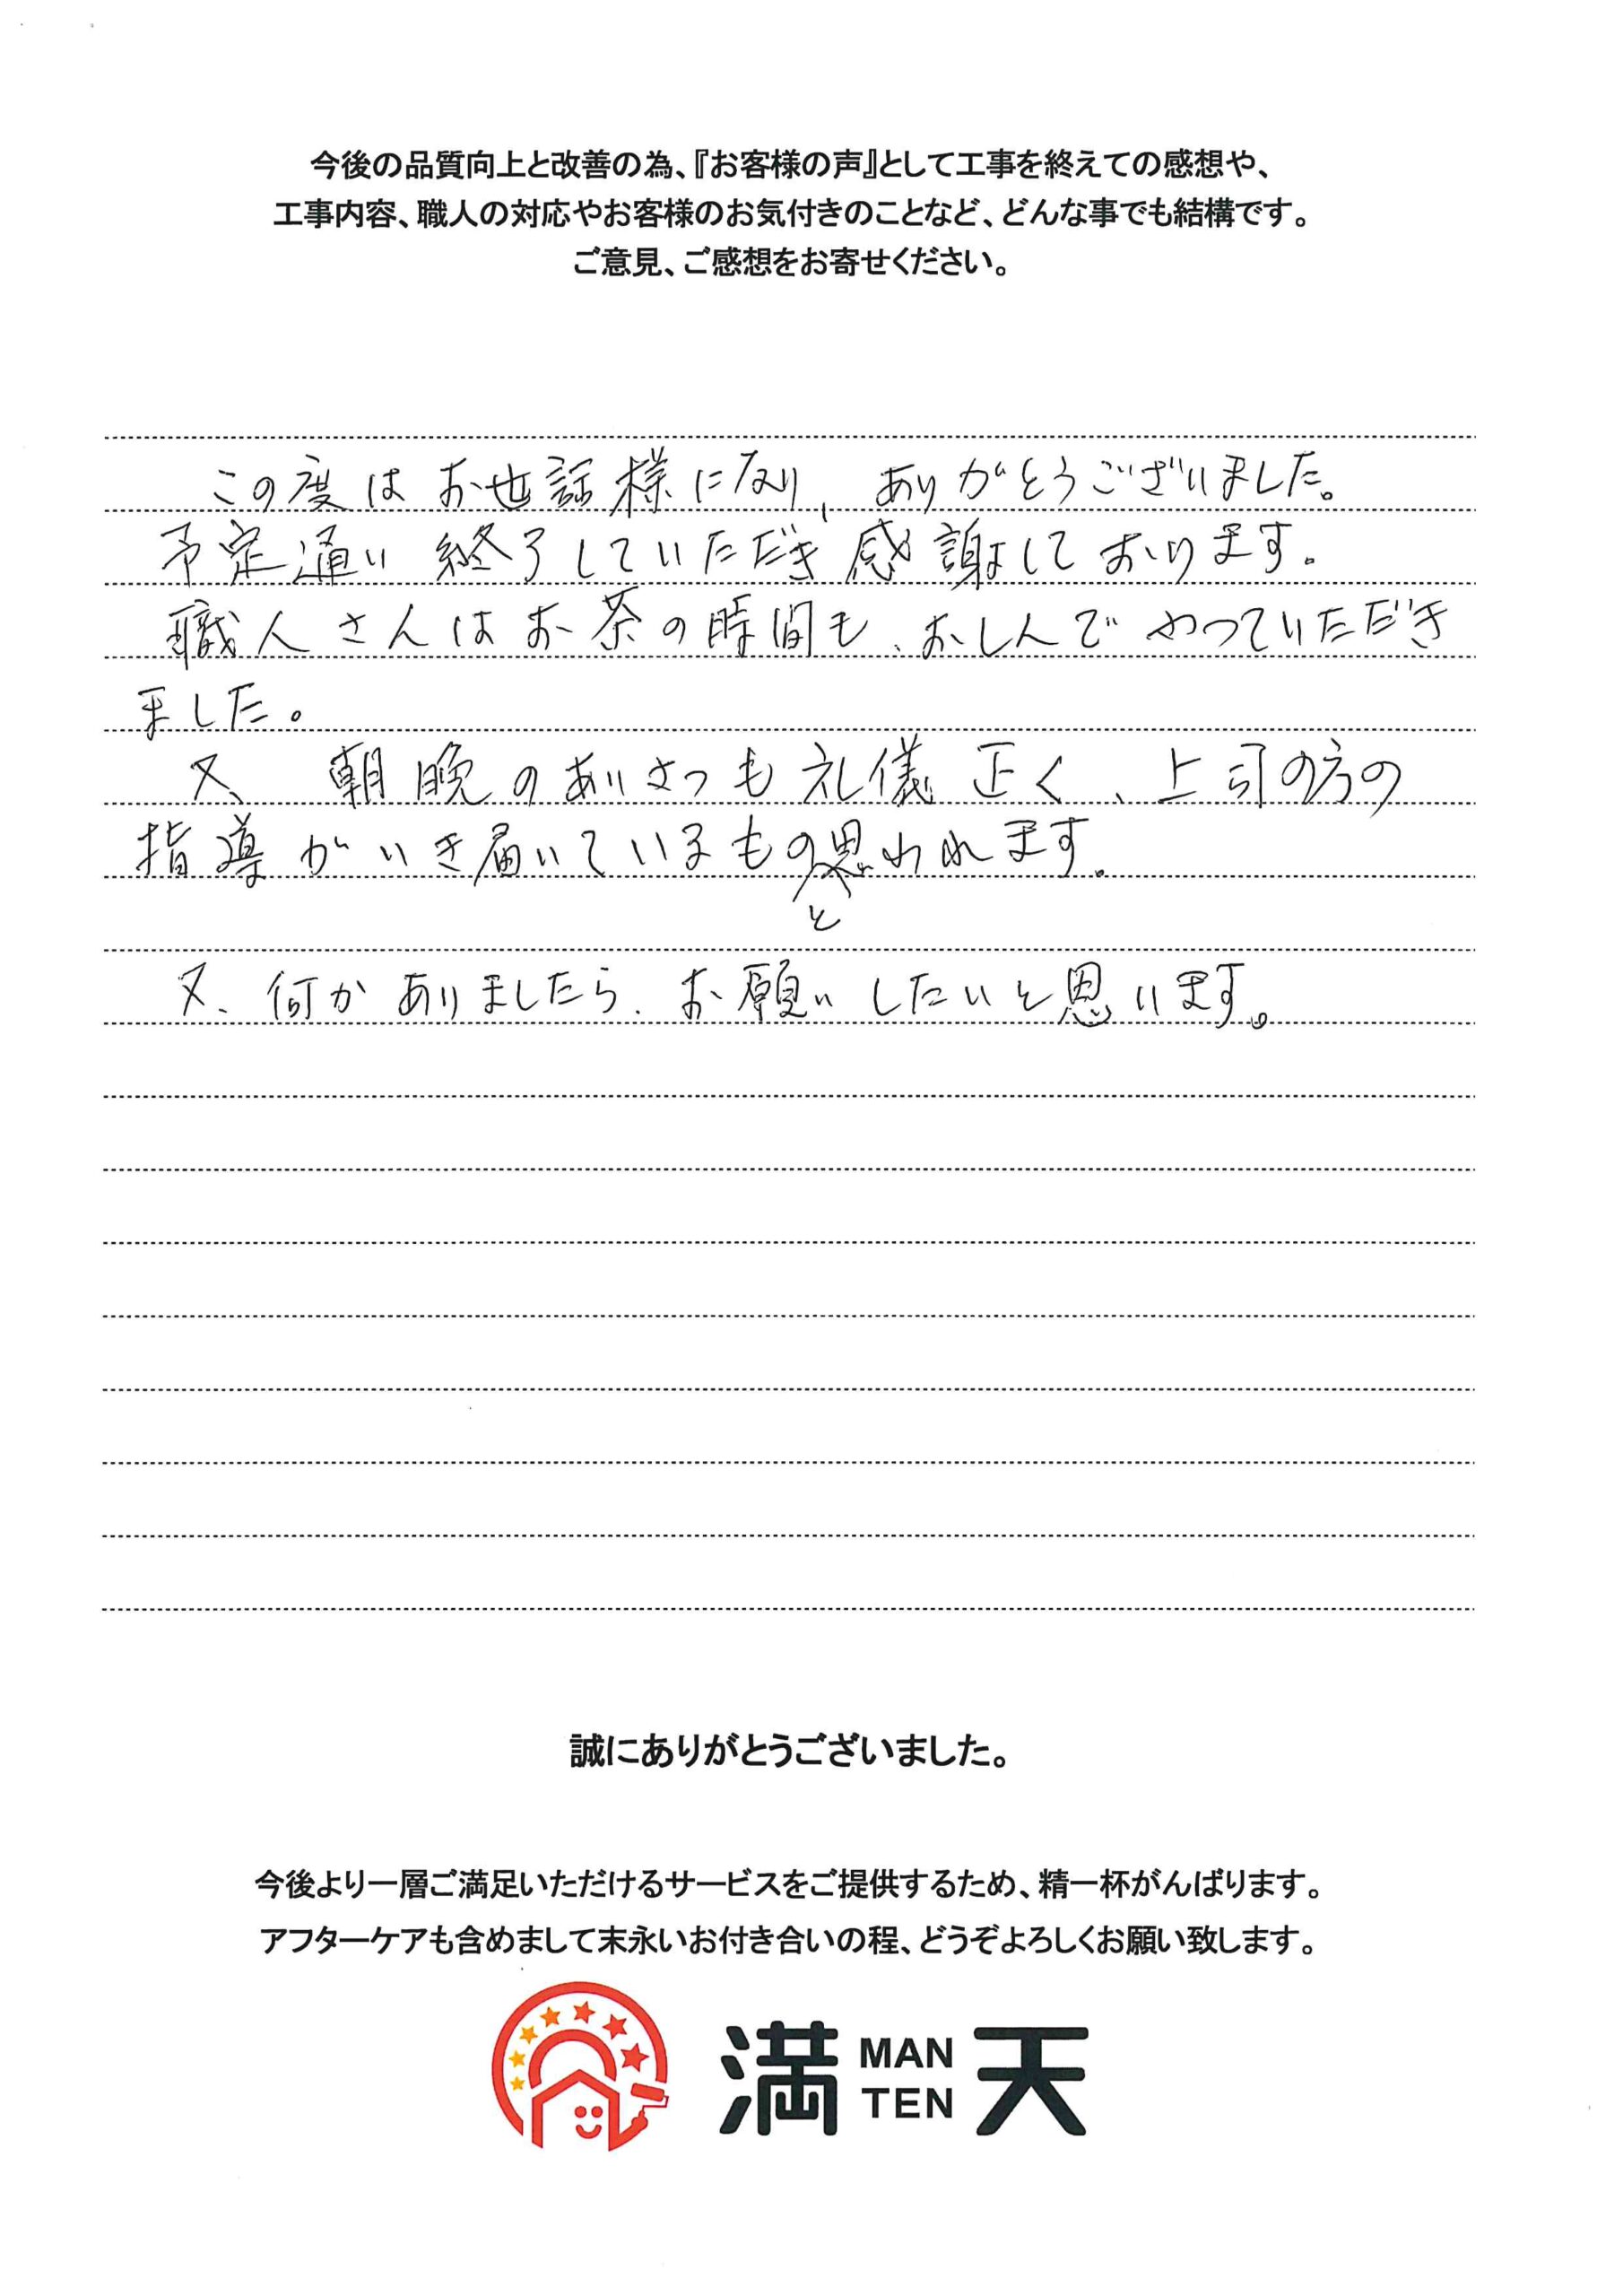 今後の品質向上と改善の為、『お客様の声』として工事を終えての感想や、
工事内容、職人の対応やお客様のお気付きのことなど、どんな事でも結構です。
ご意見、ご感想をお寄せください。
この度はお世話様になり、ありがとうございました。
予定通り終了していただき感謝しております。
職人さんはお茶の時間も、おしんでやっていただき
ました。
又、朝晩のあいさつも礼儀正く、上司の方の
指導がいき届いているものと思われます。
又、何かありましたら、お願いしたいと思います。
誠にありがとうございました。
今後より一層ご満足いただけるサービスをご提供するため、精一杯がんばります。
アフターケアも含めまして末永いお付き合いの程、どうぞよろしくお願い致します。
満天 MAN TEN